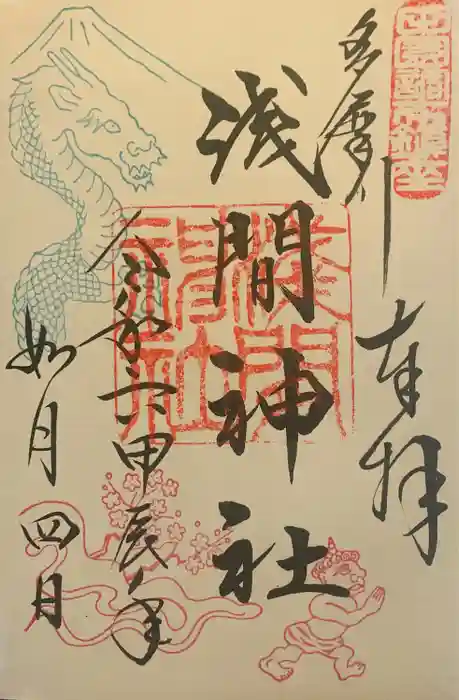 多摩川
奉拝
浅間神社
淺間
神社
令和六甲辰年
如月四日